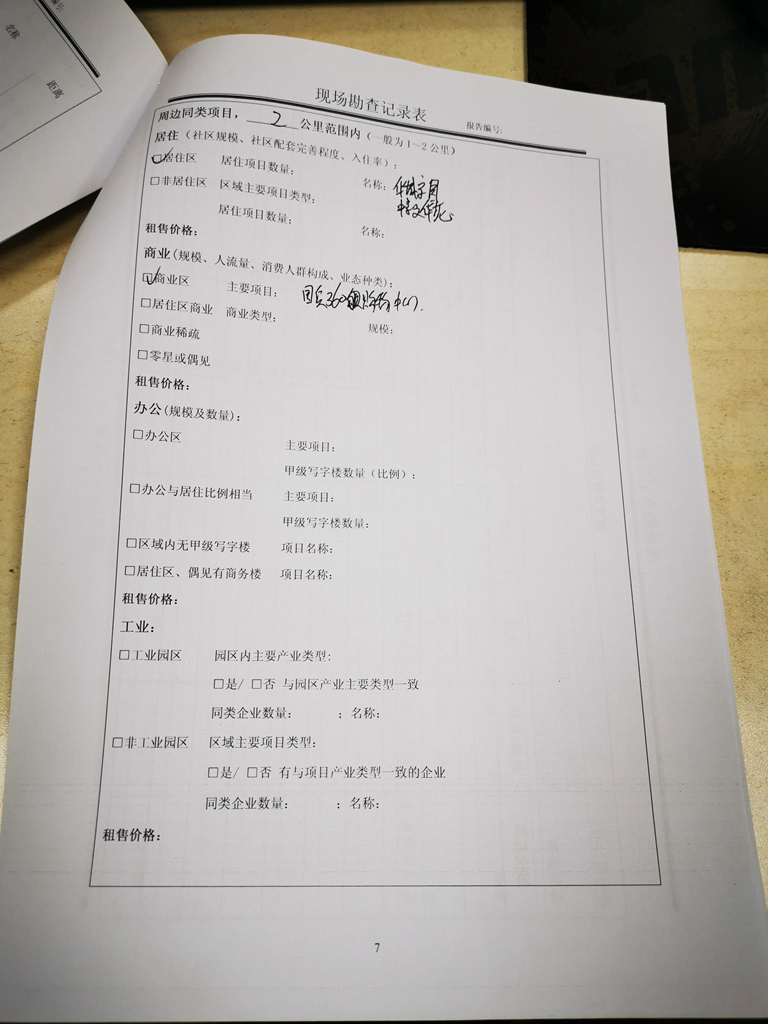 编号:
名称
距离
现场勘查记录表
报告编号:
周边同类项目， 2 公里范围内（一般为 1～2 公里）
居住（社区规模、社区配套完善程度、入住率）:
☑居住区 居住项目数量: 名称:
□非居住区 区域主要项目类型:
居住项目数量: 名称:
租售价格:
商业(规模、人流量、消费人群构成、业态种类):
☑商业区 主要项目: 360 中心.
□居住区商业 商业类型: 规模:
□商业稀疏
□零星或偶见
租售价格:
办公(规模及数量):
□办公区 主要项目:
甲级写字楼数量（比例）:
□办公与居住比例相当 主要项目:
甲级写字楼数量:
□区域内无甲级写字楼 项目名称:
□居住区、偶见有商务楼 项目名称:
租售价格:
工业:
□工业园区 园区内主要产业类型:
□是/ □否 与园区产业主要类型一致
同类企业数量: ; 名称:
□非工业园区 区域主要项目类型:
□是/ □否 有与项目产业类型一致的企业
同类企业数量: ; 名称:
租售价格:
7